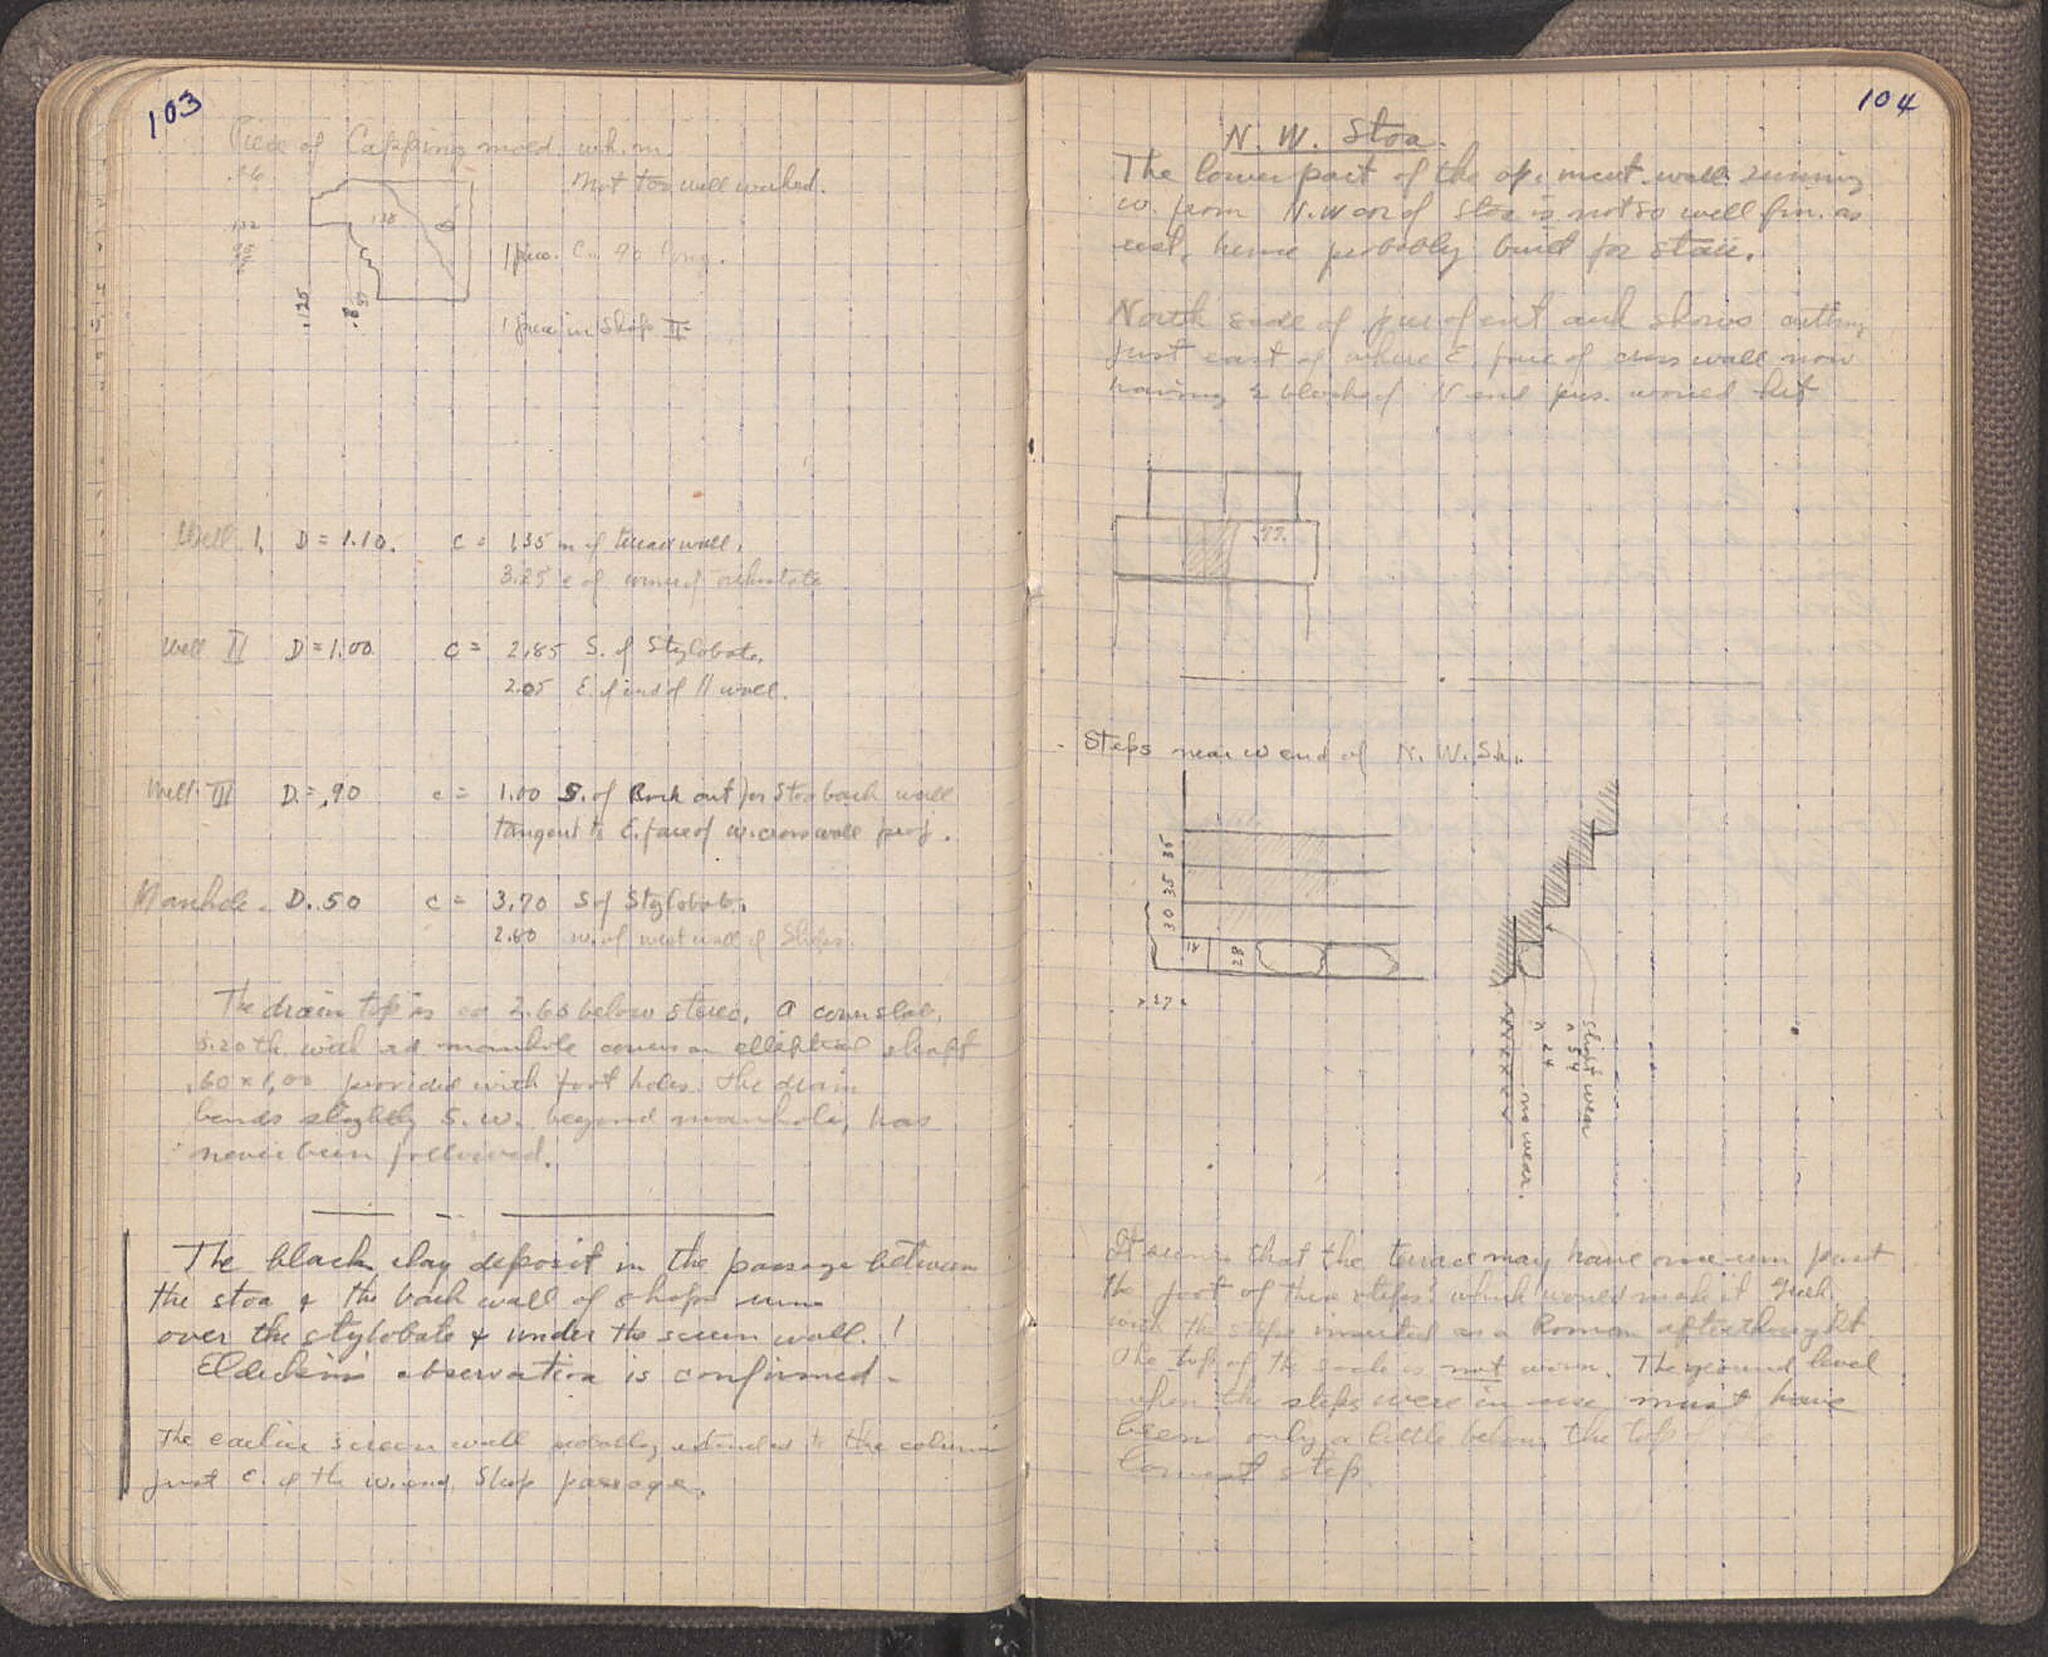 103
Piece of Capping mold. wh. m.
.26
Not too well worked.
.138
1 piece. Ca 90 long.
.125
1 piece in Shop II
Well 1. D = 1.10. C = 1.35 n of terrace wall.
3.25 e of corner of orthostate
Well II D = 1.00. C = 2.85 S. of Stylobate.
2.05 E. of end of H wall.
Well III D. = .90 c = 1.00 S. of Rock cut for Stoa back wall
tangent to E. face of w. cross wall proj.
Manhole. D. .50 c = 3.70 S of Stylobate.
2.60 w. of west wall of Shops.
The drain top is ca 2.60 below stereo. A cover slab,
0.20 th. with rd manhole covers an elliptical shaft
.60 x 1.00 provided with foot holes. The drain
bends slightly S. W. beyond manhole, has
never been followed.
The black clay deposit in the passage between
the stoa & the back wall of shops runs
over the stylobate & under the screen wall. !
observation is confirmed.
The earlier screen wall probably extended to the column
just E. of the w. end Shop passage.
104
N. W. Stoa.
The lower part of the wall running
w. from N.W cor of Stoa is not so well fin. as
rest, hence probably built for stair.
North side of and shows cutting
just east of where E. face of cross wall now
having blocked N end would hit
.77.
Steps near w end of N. W. Sh..
35
35
30
18
28
.27
slight wear
.34
.24
no wear.
It seems that the terrace may have once run past
the foot of these steps! which would make it Greek
with the steps inserted as a Roman afterthought.
The top of the socle is not worn. The ground level
when the steps were in use must have
been only a little below the top of the
lowest step.